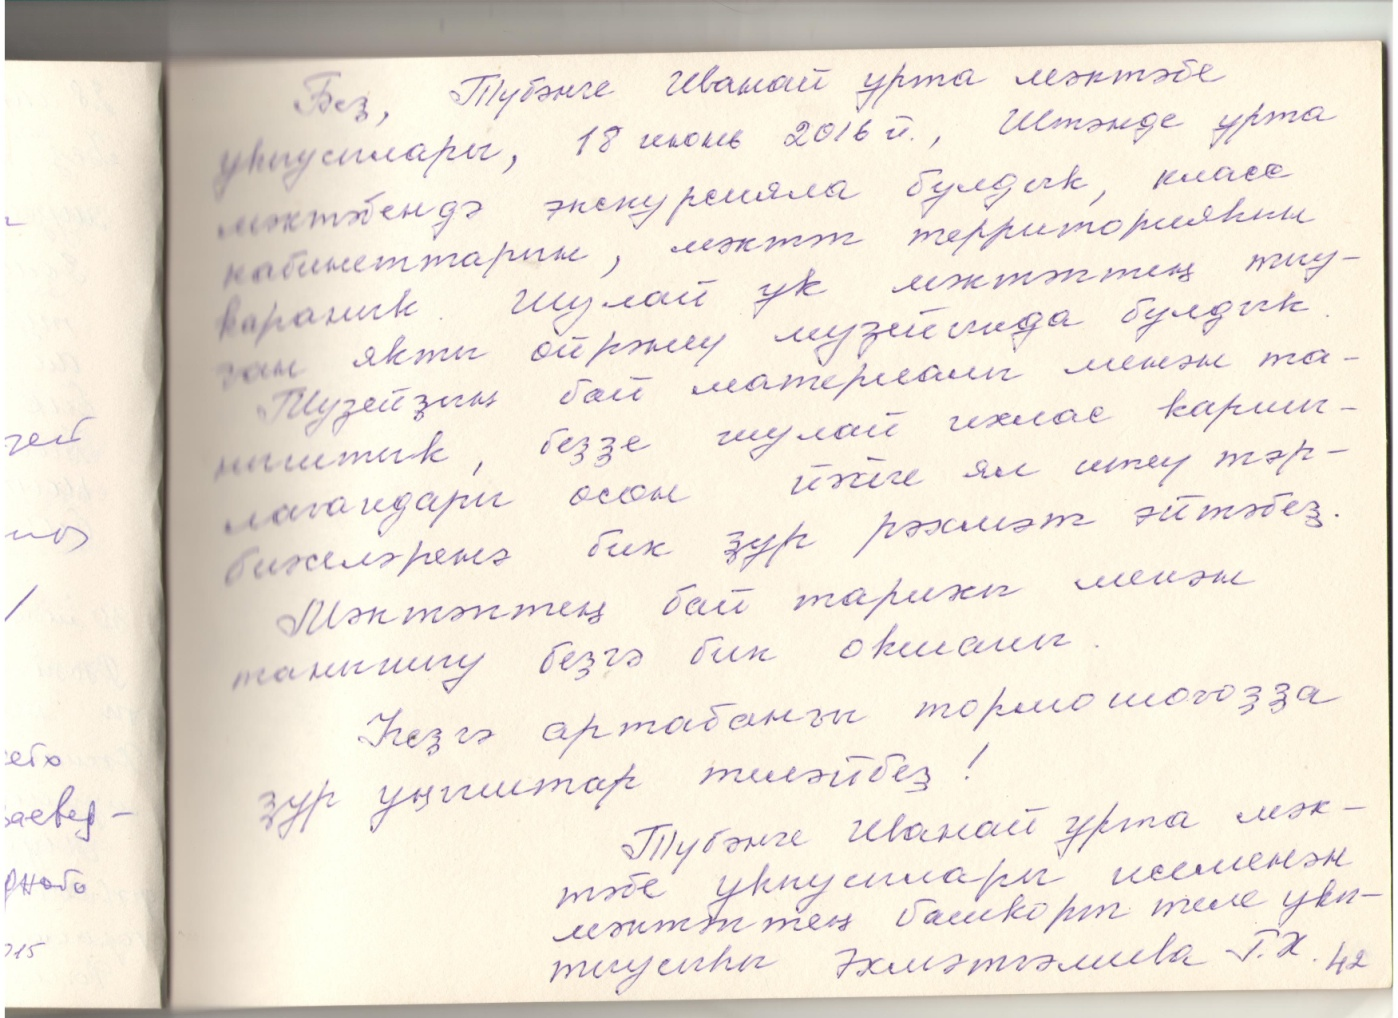 Беҙ, Түбәнге Иванай урта мәктәбе
уҡыусылары, 18 июнь 2016 й., Штәнде урта
мәктәбендә экскурсияла булдыҡ, класс
кабинеттарын, мәктәп территорияһын
ҡараныҡ. Шулай уҡ мәктәптең тыу-
ған яҡты өйрәнеү музейында булдыҡ.
Музейҙың бай материалы менән та-
ныштыҡ, беҙҙе шулай ихлас ҡаршы-
лағандары өсөн йәйге ял итеү тәр-
биәселәренә бик ҙур рәхмәт әйтәбеҙ.
Мәктәптең бай тарихы менән
танышыу беҙгә бик оҡшаны.
Һеҙгә артабанғы тормошоғоҙҙа
ҙур уңыштар теләйбеҙ!
Түбәнге Иванай урта мәк-
тәбе уҡыусылары исеменән
мәктәптең башҡорт теле уҡы-
тыусыһы Әхмәтғәлиева Г.Х. 42
зей
ваевед-
дново
015